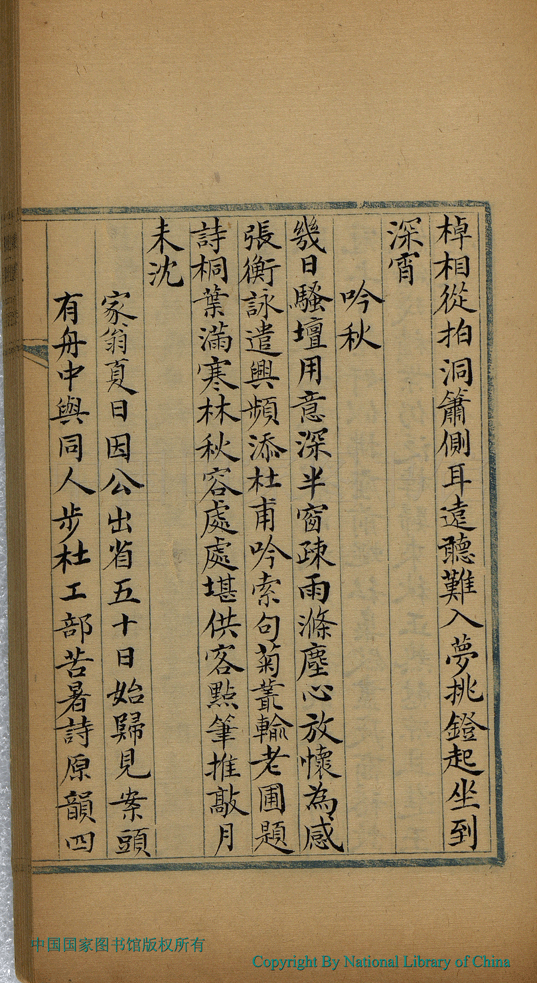 棹相從拍洞簫側耳遠聽難入夢挑鐙起坐到
深宵
吟秋
幾日騷壇用意深半窗疎雨滌塵心放懷為感
張衡詠遣興頻添杜甫吟索句菊叢輸老圃題
詩桐葉滿寒林秋容處處堪供客點筆推敲月
未沈
家翁夏日因公出省五十日始歸見案頭
有舟中與同人步杜工部苦暑詩原韻四
中国国家图书馆版权所有
Copyright By National Library of China